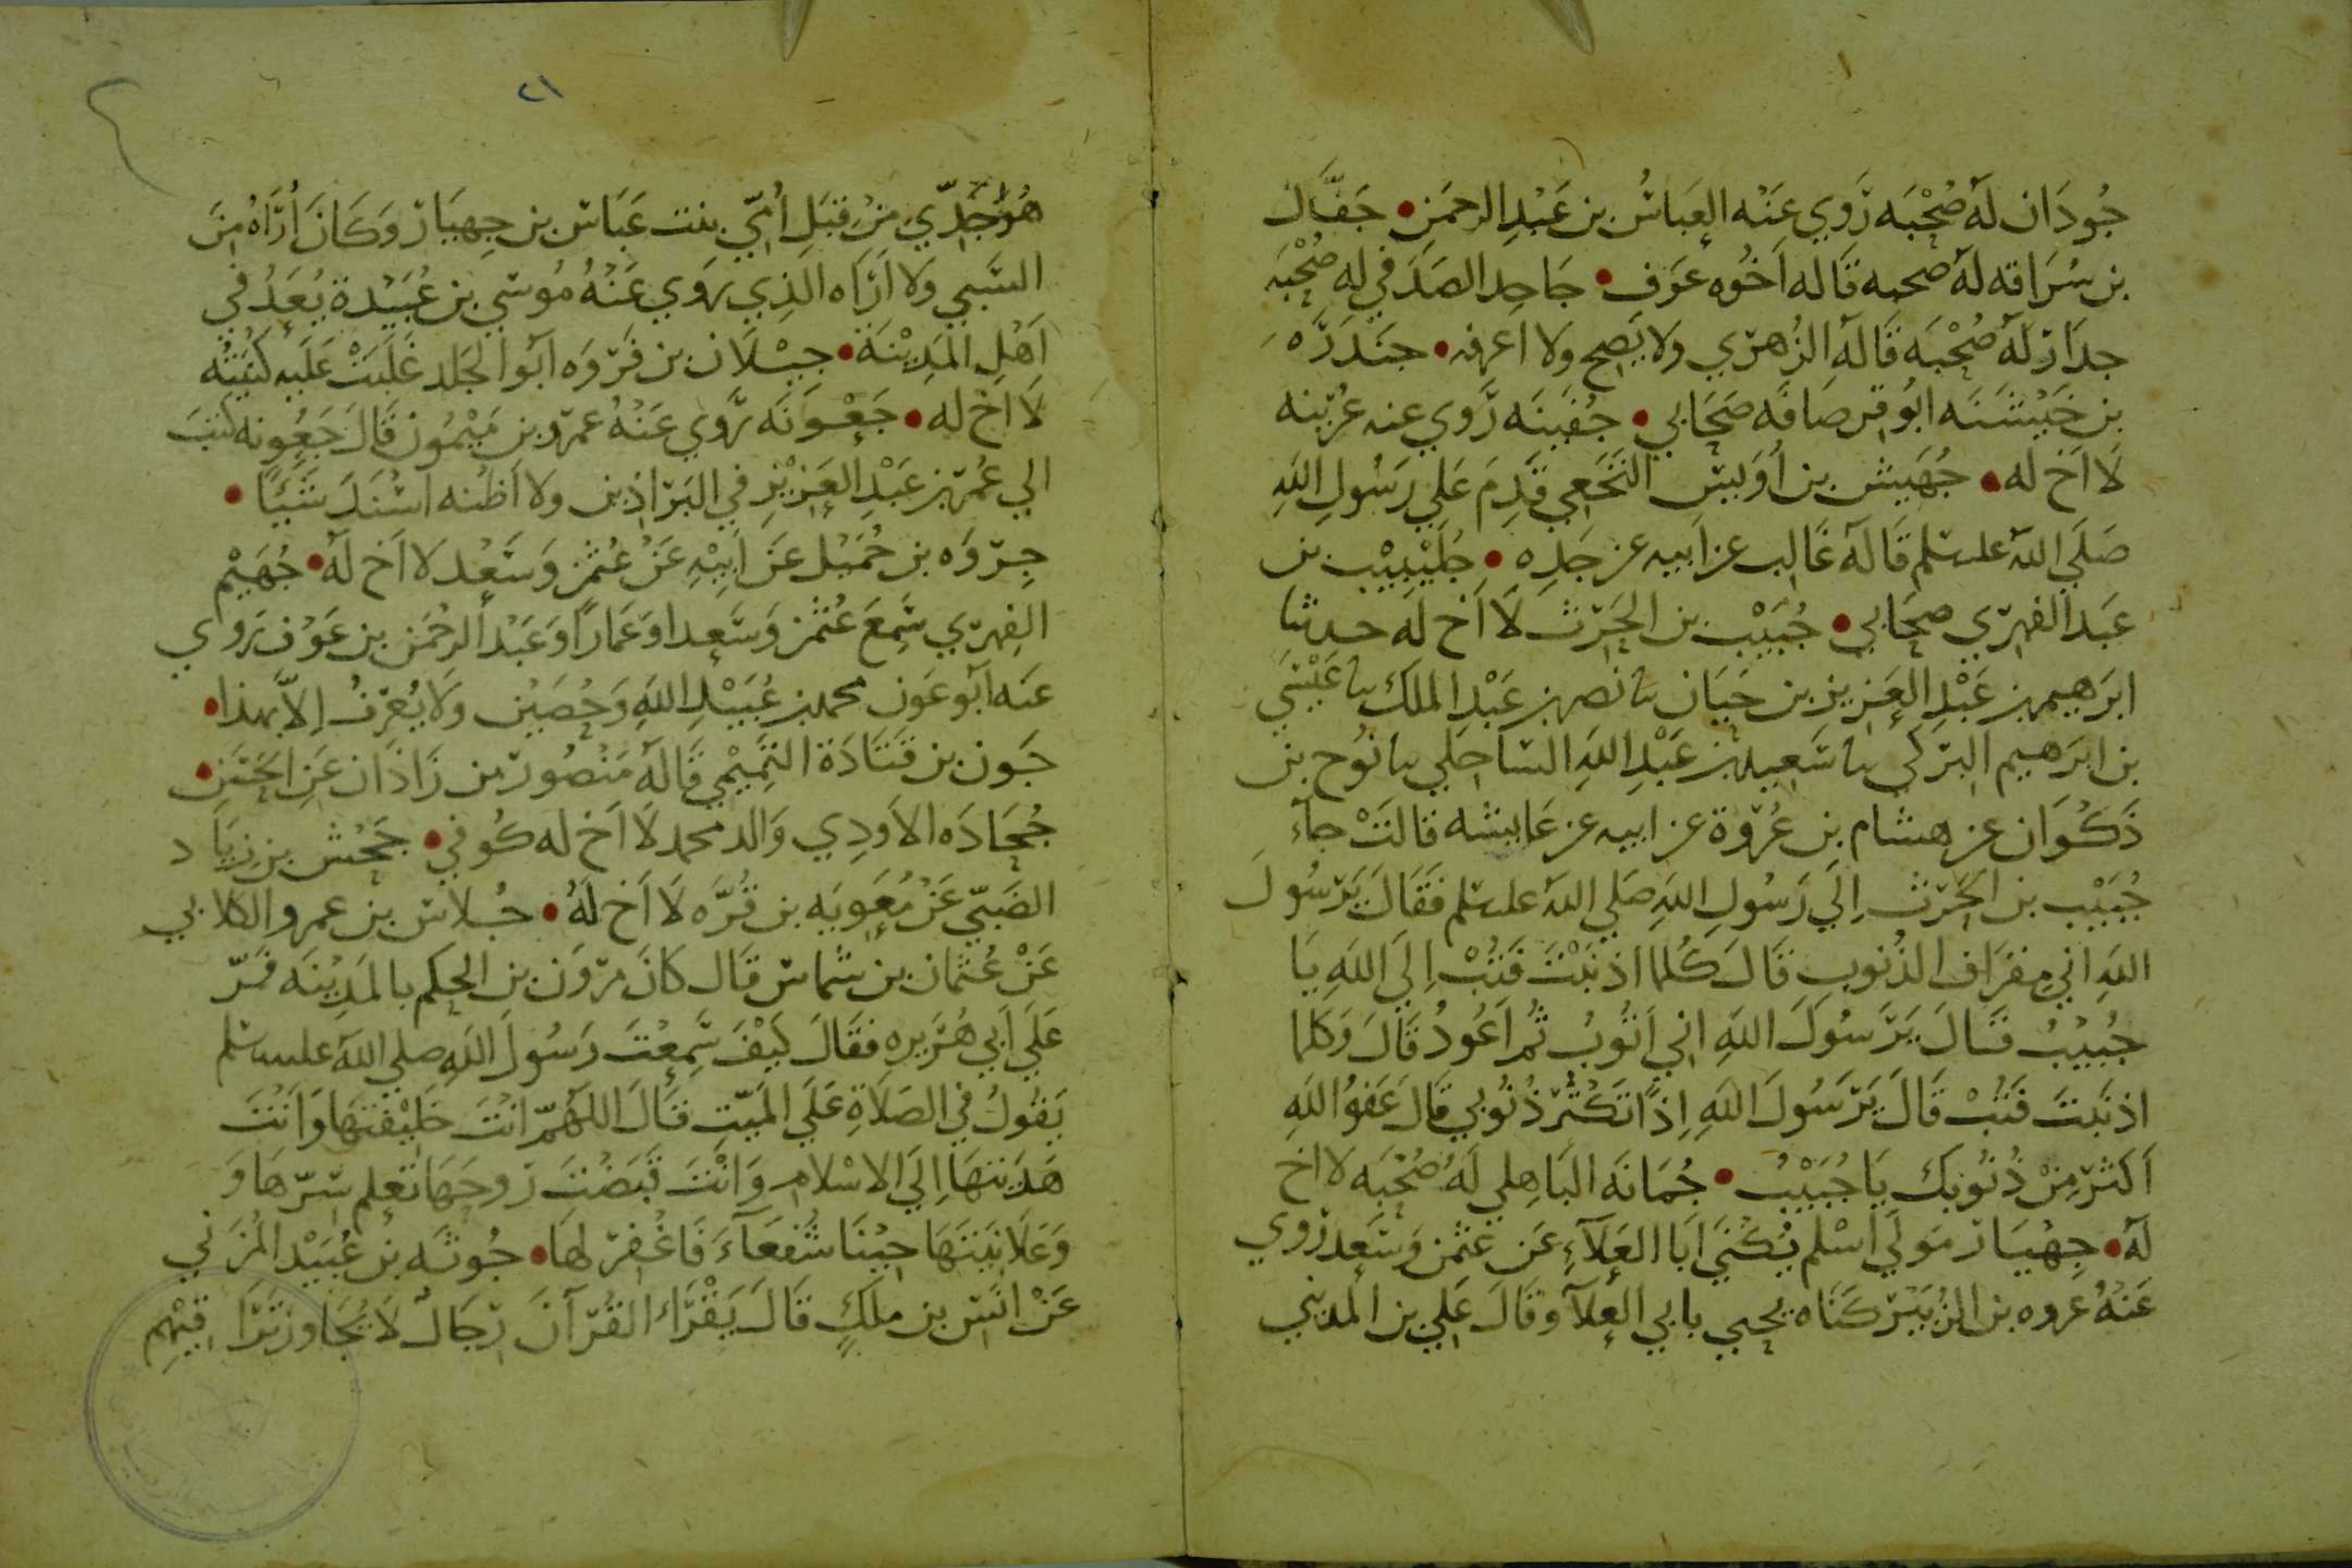 جُودَان لَهُ صُحْبَه رَوي عَنْه العَباسُ بن عَبْدِ الرحمَنِ • جَفَّال
بن سُرَاقه لهُ صحبه قَاله اَخُوه عَوَف • جَاحِد الصَدَفي له صُحْبَه
جدَار لَهُ صُحْبَه قَالَهُ الزُهرَي ولا يَصِح ولا اعرفه • جنَدَرَه
بن خَيْشَنَه ابُو قرصَافَه صَحَابي • جُفَيَنَه رَوي عنه عُرَينه
لَا اَخ له • جُهَيش بن اُوَيس النَخَعِي قَدِمَ عَلي رَسُولِ اللهِ
صَلَي اللهُ عليه سلم قَالَهُ غَالِب عن اَبيه عن جَدِه • جُلَيْبِيْب بن
عَبد الفهرَي صحَابي • جُبَيْب بن الحَرَث لَا اَخ له حدثنا
ابرَهيم بن عَبْدِ العَزيز بن حَيَان نا نَصر بن عَبْد الملَك نا عَيْسَي
بن ابرَهيم البَرَكي نا سَعِيد بن عَبْدِ اللهِ السَاحِلي نا نوُح بن
ذَكْوَان عن هشام بن عُرْوة عن ابيه عن عَايشه قالَتْ جآءَ
جُبَيْب بن الحَرَث اِلَي رَسُول اللهِ صَلي اللهُ عليه سلم فَقَالَ يَرَسُولَ
اللهِ اني مقرَاف الذُنوب قَالَ كُلما اذنَبْتَ فَتُبْ اِلَي اللهِ يَا
جُبَيْبُ قَالَ يَرَسُولَ اللهِ اني اَتُوبُ ثُم اَعُودُ قَالَ وَكلما
اذنَبتَ فَتُبْ قَالَ يَرَسُولَ اللهِ اِذًا تَكْثُر ذُنُوبي قَالَ عَفوُ اللهِ
اَكثَر مِنْ ذُنُوبك يَا جُبَيْبُ • جُمَانَه البَاهِلي لَهُ صُحْبَه لا اخ
لهُ • جِهْيَار مَولَي اَسْلم يُكْنَي اَبَا العَلآءِ عَن عثمن وَسَعد رَوي
عَنْهُ عروه بن الزُبَيْر كَنَاه يحيي بابي العلآ وقَالَ عَلي بن المديني
٢١
هُوَ جَدِّي مِنْ قبَلِ اُمّي بنت عَبَاس بن جِهيَار وَكَانَ اُرَاهُ مِنَ
السَبي وَلا اَرَاه الذِي رَوَي عَنْهُ مُوسَي بن عُبَيْدة يُعَدُ في
اَهْلِ المَدِيْنَة • جيْلَان بن فَرْوَه اَبُو الجَلد غَلَبَتْ عَلَيه كُنيَتُه
لَا اَخ له • جَعْوَنَه رَوي عَنْهُ عمرو بن مَيْمُون قَالَ جَعوُنه كتبَ
الي عُمر بن عَبْدِ العَزِيْز في البَرَاذين ولا اَظُنه اَسْنَدَ شَيئًا •
جِرْوَه بن حُمَيْل عَن اَبيْهِ عَنْ عُثمن وَسَعْد لا اَخ لهُ • جُهَيْم
الفِهرَي سَمِعَ عُثمَن وَسَعدا وَعَمَارًا وَعَبْد الرحْمَن بن عَوْف رَوي
عَنه اَبُو عَون محمد بن عُبَيْدِ اللهِ وَحُصَيْن ولَا يُعرَفُ اِلاَّ بهذا •
جَون بن قَتَادَة التَمِيْمي قَالَهُ مَنْصُور بن زَاذَان عَنِ الحَسَنِ •
جُحَادَه الاَودِي وَالد محمد لَا اَخ له كُوفي • جَحْش بن زيَاد
الضَبّي عَنْ مُعَوِيَه بن قُرَّه لَا اَخ لهُ • جُلاس بن عمرو الكلابي
عَنْ عُثمَان بن شمَاس قَال كَانَ مرْوَن بن الحكم بالمَدِيْنَه فَمَرّ
عَلَي اَبي هُرَيره فقَالَ كَيْفَ سَمِعْتَ رَسُولَ اللهِ صلي اللهُ عليه سلم
يَقُولُ في الصَلَاةِ عَلَي المَيّتِ قَالَ اللهُمّ اَنْتَ خَلَيْقتَهَا وَاَنْتَ
هَدَيتَهَا اِلَي الاسْلام وَاَنْتَ قَبَضْتَ رَوحَهَا تَعلم سِرّهَا وَ
وَعَلَانيَتَهَا جيْنَا شُفَعَآءَ فَاغْفِر لهَا • جُوثَه بن عُبَيْد المُزَني
عَنْ اَنَس بن ملَكٍ قَالَ يَقْرَاء القُرآنَ رجَالُ لَا يُجَاوز تَرَاقيْهِم